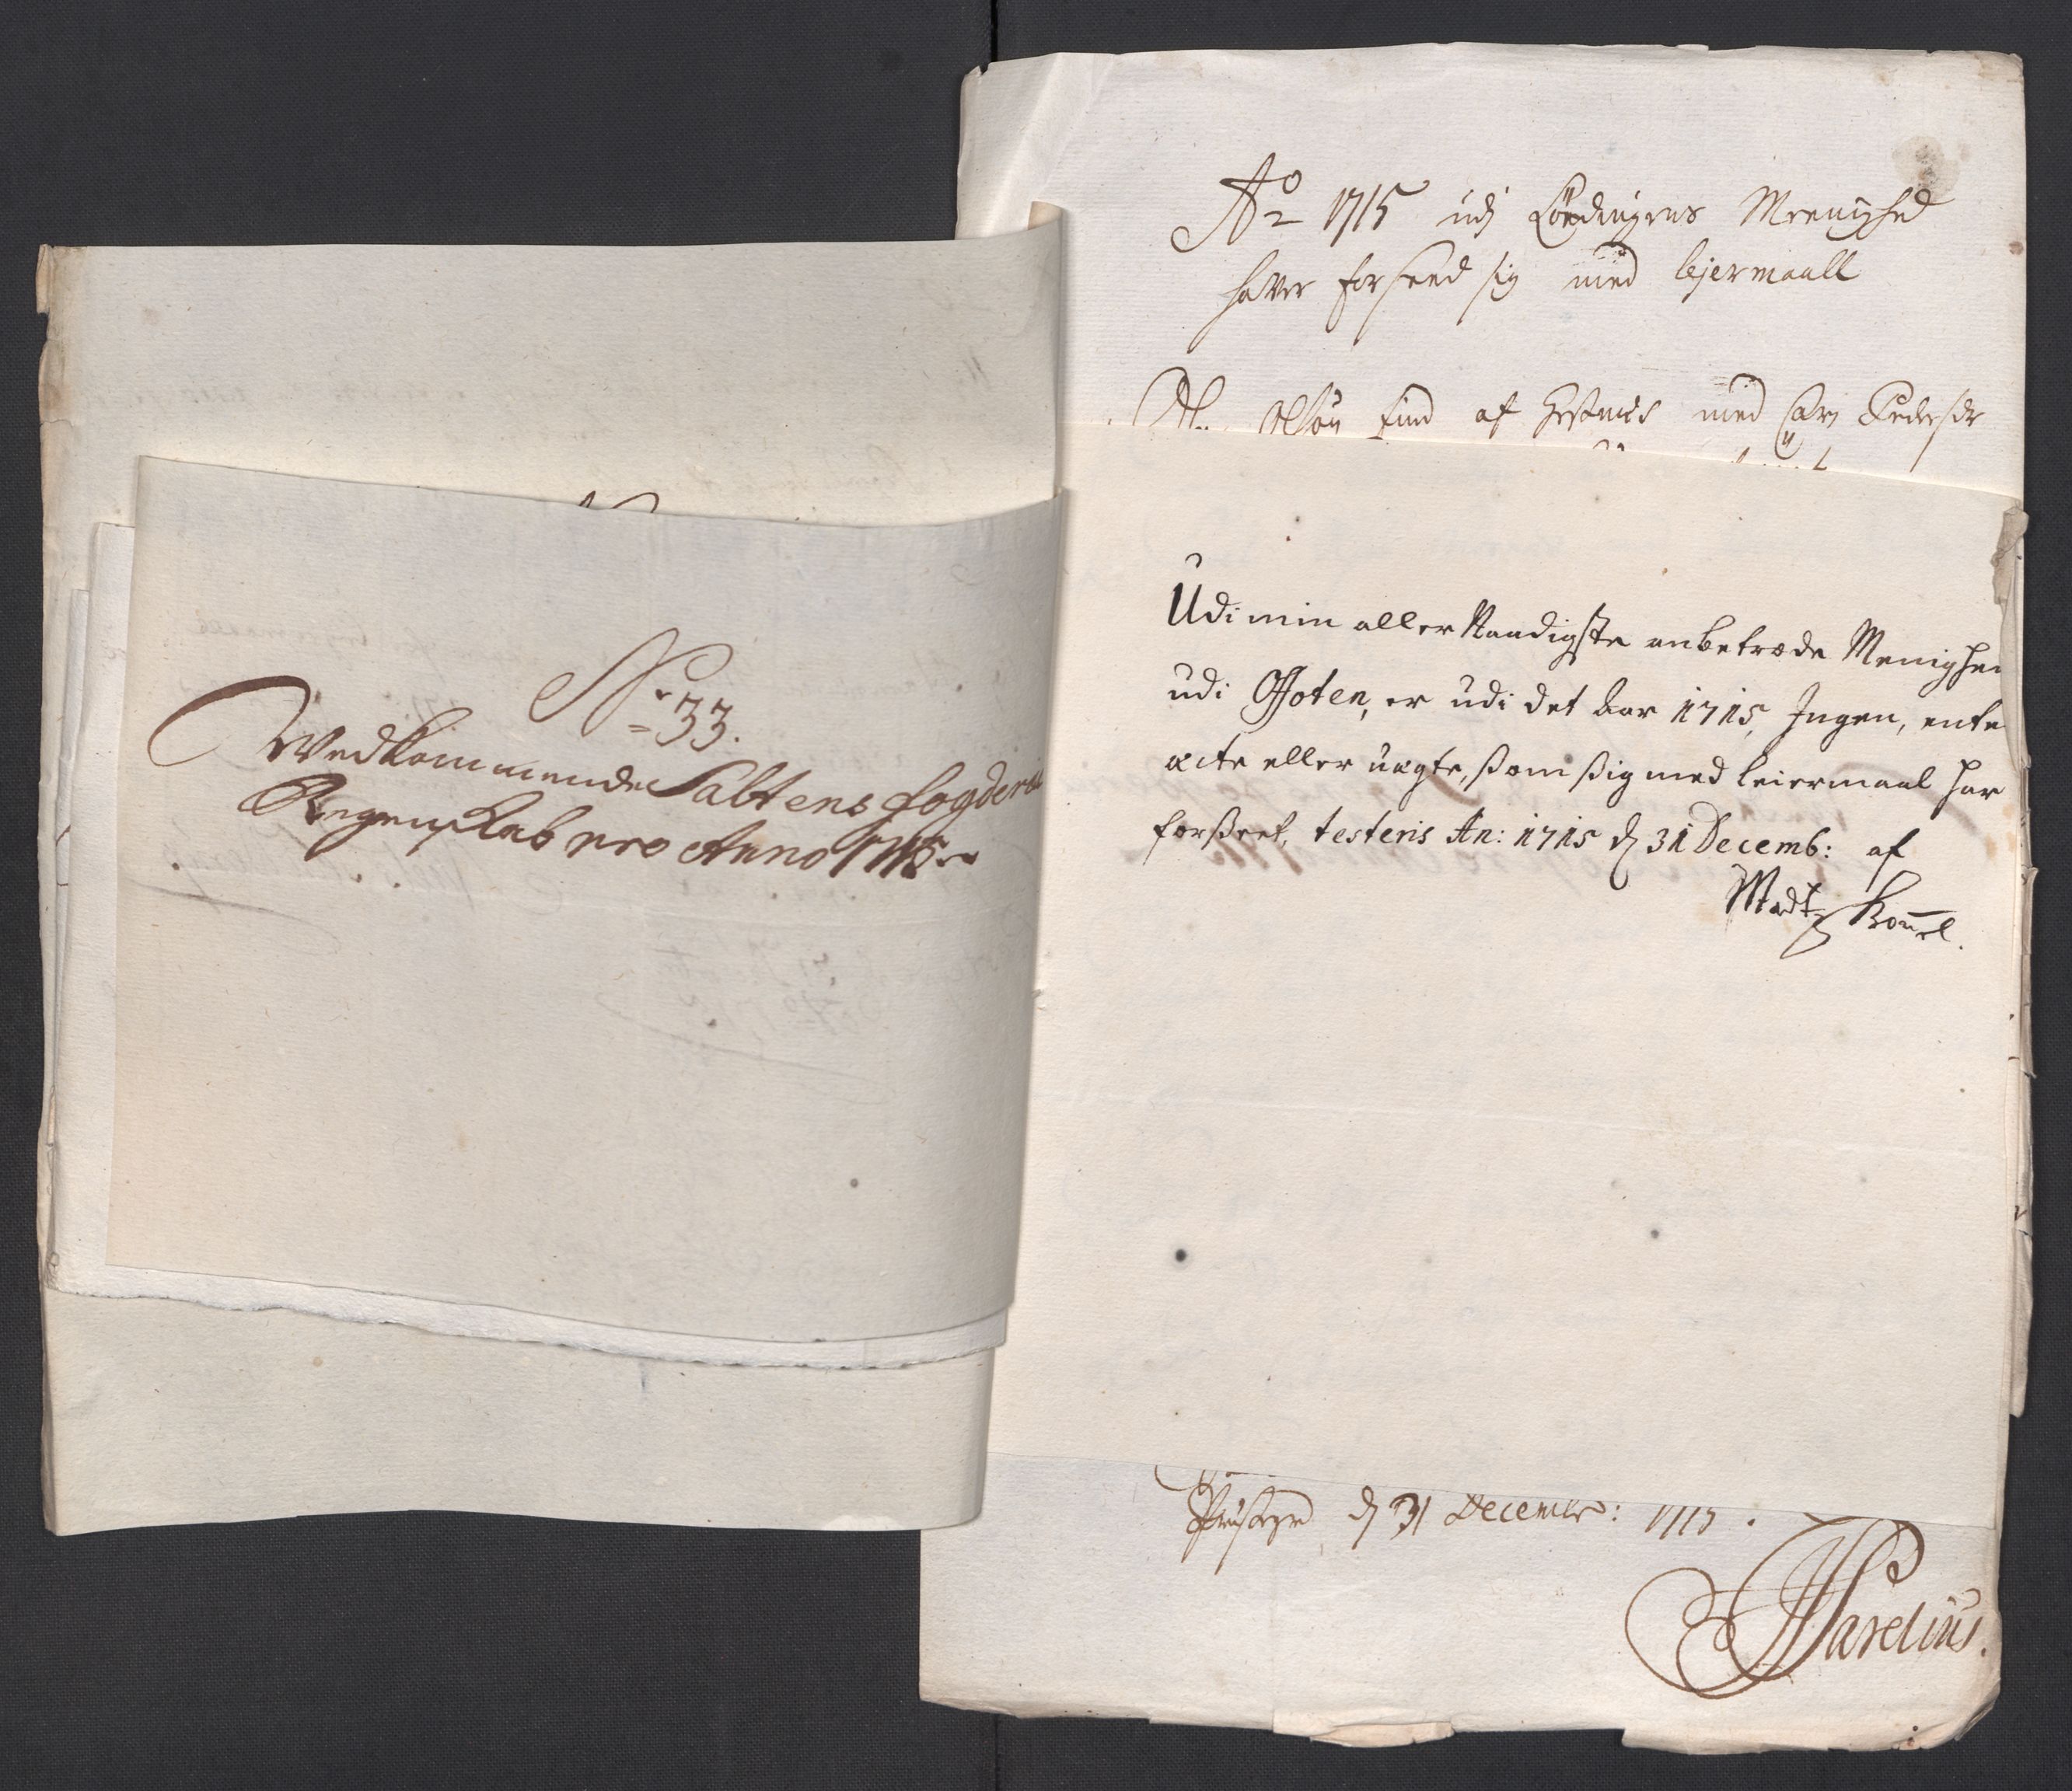 No 33.
Wedkommende Saltens fogderie
Regenskab pro Anno 1715
Ao 1715 udj Lødingens Meenighed
hafver forseed sig med lejermaall
Olsøn Find af med Pedersdr
Udi min aller Naadigste anbetrode Menighed
udi Ofoten, er udi det Aar 1715, Ingen, ente
ecte eller uegte, ßom ßig med leiermaal har
forßeet, testeris An: 1715 d 31 Decemb: af
d 31 Decembr: 1715.